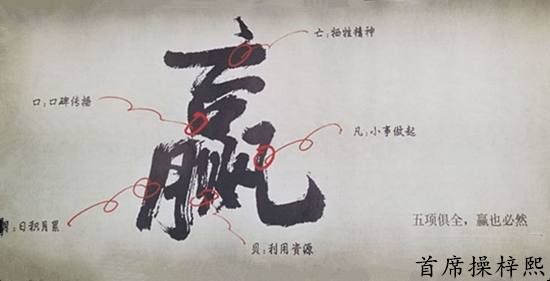 亡：牺牲精神
口：口碑传播
赢
凡：小事做起
月：日积月累
贝：利用资源
五项俱全，赢也必然
首席操梓熙